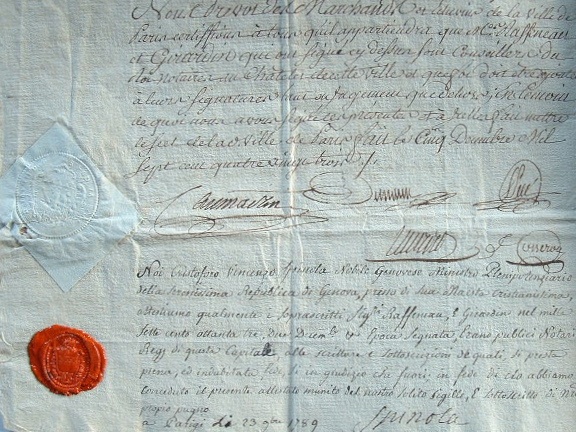 Nous Prevot des Marchands et Echevins de la Ville de
Paris certiffions à tous qu'il appartiendra que Mes Raffeneau
et Girardin qui ont signé cy dessus sont Conseillers du
Roi notaires au Chatelet de cette Ville et que foi doit etre ajoutée
à leurs signatures tant en Jugement que dehors; En temoin
de quoi nous avons signé ces presentes et à icelles fait mettre
le scel de lad. Ville de Paris fait le Cinq Decembre Mil
Sept cent quatre vingt trois ./.
Caumartin
Noi Cristoforo Vincenzo Spinola Nobile Genovese Ministro Plenipotenziario
della Serenissima Republica di Genova, presso di Sua Maesta Cristianissima,
Attestiamo qualmente i soprascritti Sigri Raffeneau, E Girardin nel mil
Sette cento ottanta tre, due Decembre Epoca Segnata, Erano publici Notari
Regj di questa Capitale alle scritture e sottoscrizioni de quali, si presta
piena, ed indubitata fede, si in giudizio che fuori: in fede di cio abbiamo
conceduto il presente attestato munito del nostro solito sigillo, E sottoscritto di Nro
proprio pugno
à Parigi li 23 9bre 1789
Spinola